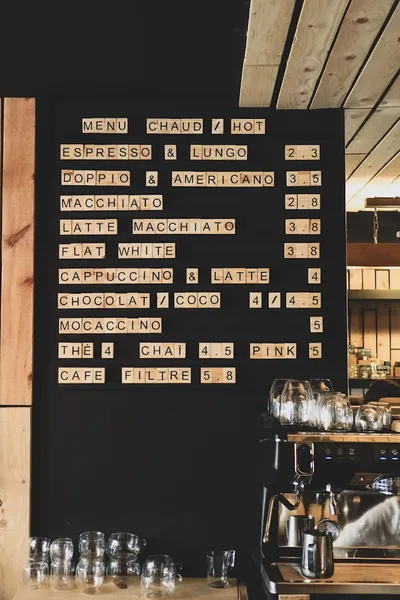 MENU CHAUD / HOT
ESPRESSO & LUNGO 2.3
DOPPIO & AMERICANO 3.5
MACCHIATO 2.8
LATTE MACCHIATO 3.8
FLAT WHITE 3.8
CAPPUCCINO & LATTE 4
CHOCOLAT / COCO 4 / 4.5
MOCACCINO 5
THÉ 4 CHAÏ 4.5 PINK 5
CAFE FILTRE 5.8